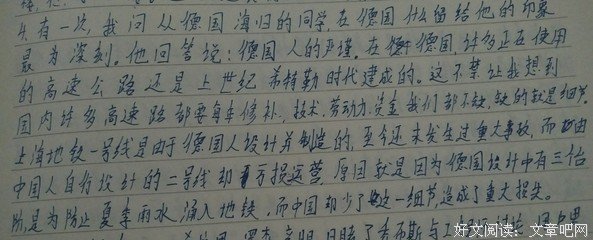 有一次,我问从德国海归的同学,在德国什么留给他的印象
最为深刻。他回答说:德国人的严谨。在德国,许多正在使用
的高速公路还是上世纪希特勒时代建成的。这不禁让我想到
国内许多高速路都要每年修补,技术、劳动力、资金我们都不缺,缺的就是细节。
上海地铁一号线是由于德国人设计并制造的,至今还未发生过重大事故,而由
中国人自行设计的二号线却亏损运营,原因就是因为德国设计中有三个台
阶,是为防止夏季雨水涌入地铁,而中国却少了这一细节,造成了重大损失。
好文阅读:文章吧网